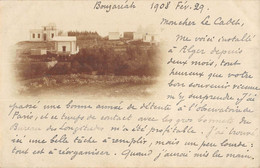 Bouzaréah 1908 Fév. 29.
Mon cher Le Cadet,
Me voici installé
à Alger depuis
deux mois, tout
heureux que votre
bon souvenir vienne
m'y surprendre. J'ai
passé une bonne année de détente à l'observatoire de
Paris, et ce temps de contact avec les gros bonnets du
Bureau des Longitudes m'a été profitable. J'ai trouvé
ici une belle tâche à remplir, mais un peu lourde :
tout est à réorganiser. Quand j'aurai mis la main